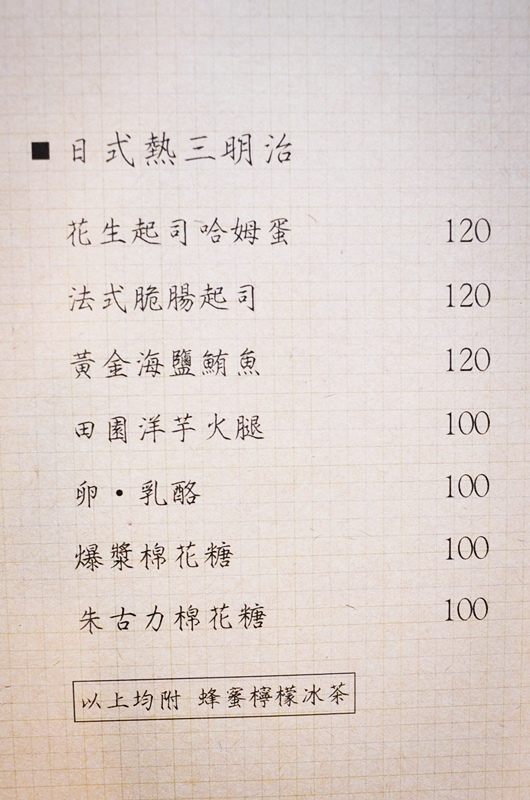 ■ 日式熱三明治
花生起司哈姆蛋 120
法式脆腸起司 120
黃金海鹽鮪魚 120
田園洋芋火腿 100
卵・乳酪 100
爆漿棉花糖 100
朱古力棉花糖 100
以上均附 蜂蜜檸檬冰茶